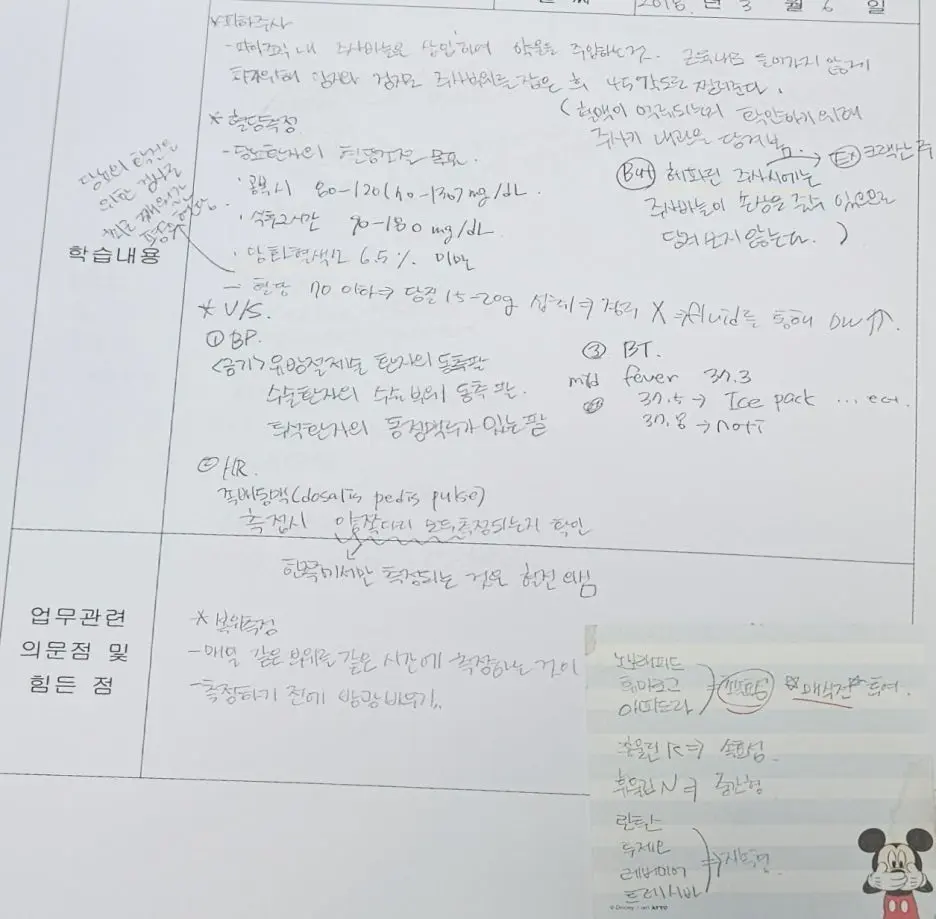 2018. 년 3 월 6 일
학습내용
* 피하주사
- 피하조직 내 주사바늘을 삽입하여 약물을 주입하는 것. 근육내로 들어가지 않게
하기위해 엄지와 검지로 주사부위를 잡은 후 45°각도로 찔러준다.
(혈액이 역류되는지 확인하기위해
주사기 내관을 당겨봄.
But 헤파린 주사시에는 → Ex) 크렉산 주
주사바늘이 손상을 줄수 있으므로
당겨보지 않는다. )
* 혈당측정
- 당뇨환자의 혈당조절 목표.
· 공복시 80-120(70-130) mg/dL.
· 식후2시간 90-180 mg/dL.
· 당화혈색소 6.5% 미만
- 혈당 70 이하⇒ 당질 15-20g 섭취⇒ 경구 X ⇒ fluid를 통해 DW ↑↑.
당뇨의 합병증
* V/S.
① BP.
<금기> 유방절제술 환자의 동측팔
수술환자의 수술 부위 동측 팔.
투석환자의 동정맥루가 있는 팔
② HR.
족배동맥(dosalis pedis pulse)
측정시 양쪽다리 모두 측정되는지 확인
한쪽에서만 측정되는 것은 혈전 의심
③ BT.
mild fever 37.3
37.5 → Ice pack ... ect.
37.8 → noti
업무관련
의문점 및
힘든 점
* 복위측정
- 매일 같은 부위를 같은 시간에 측정하는 것이
- 측정하기 전에 방광비우기.
노보래피드
휴마로그
아피드라
⇒ 초속효성 ☆매식전☆ 투여.
휴물린 R ⇒ 속효성
휴물린 N ⇒ 중간형
란투스
투제오
레버미어
트레시바
⇒ 지속형
© Disney